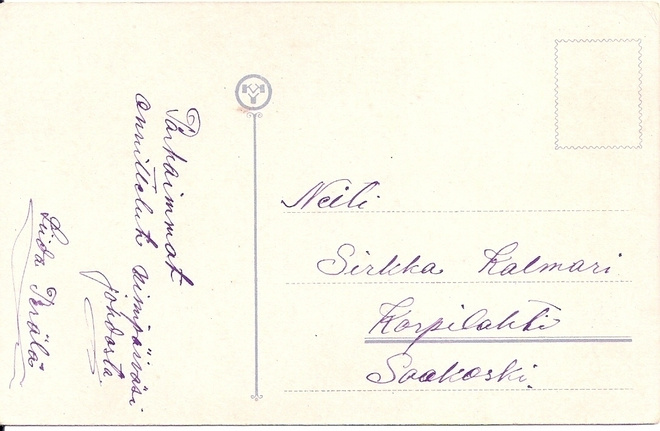 Parhaimmat
onnittelut nimipäiväsi
johdosta
Liida Perälä
Neiti
Sirkka Kalmari
Korpilahti
Saakoski.